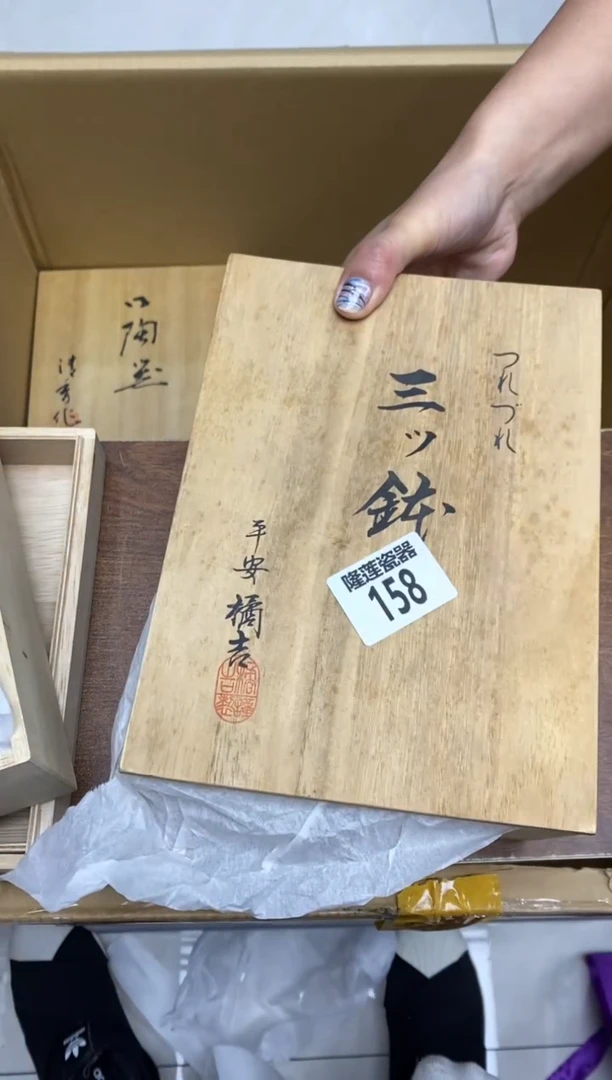 つれづれ
三ッ鉢
平安 橘吉
隆莲瓷器
158
陶器
清秀作